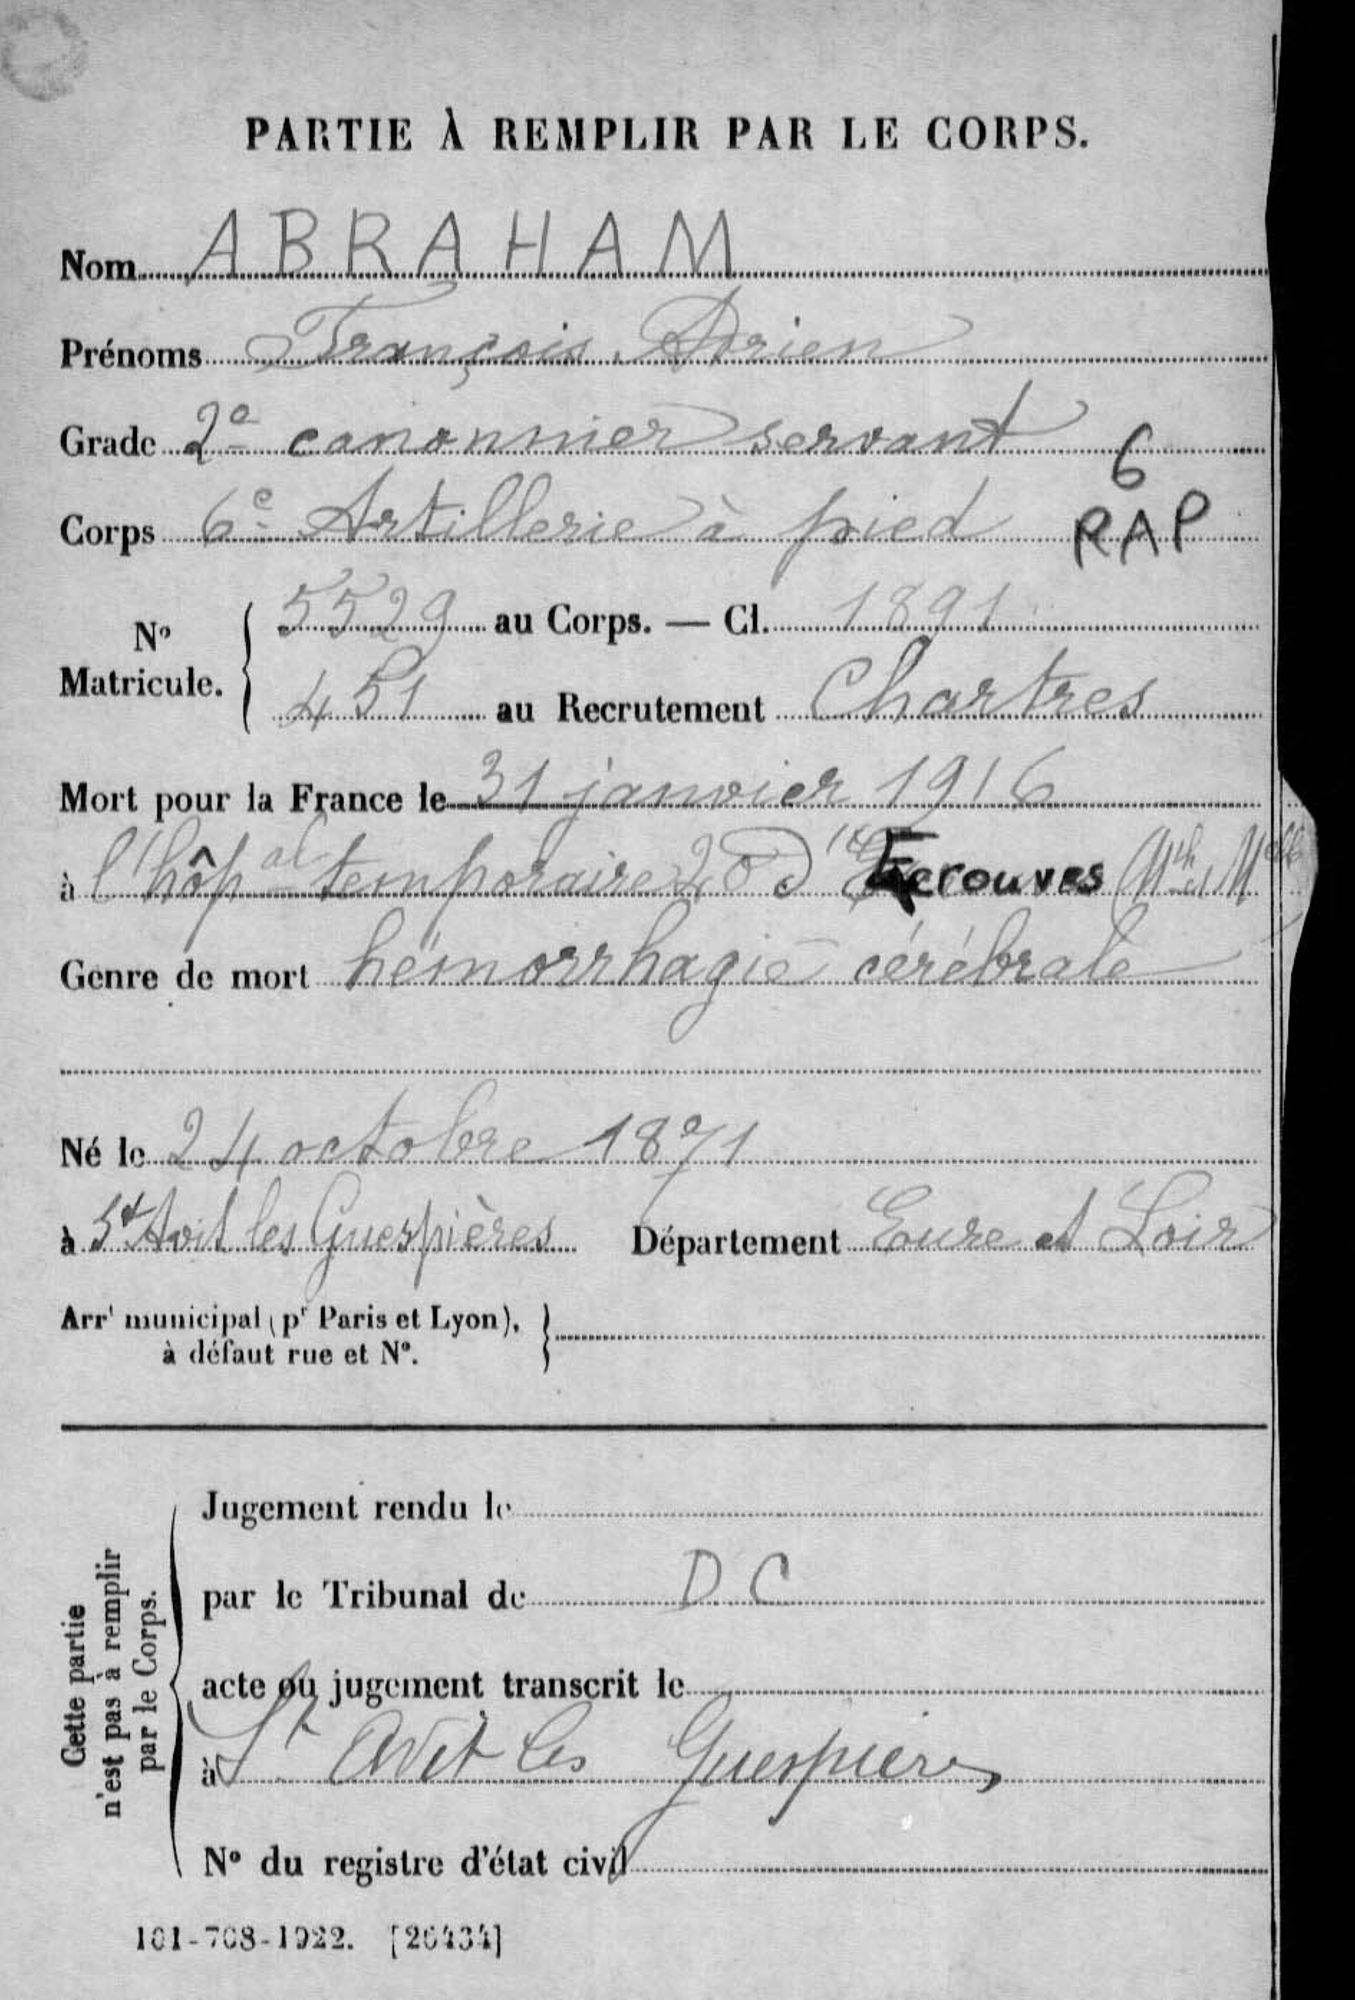 PARTIE À REMPLIR PAR LE CORPS.
Nom ABRAHAM
Prénoms François Adrien
Grade 2e canonnier servant
6
Corps 6e Artillerie à pied RAP
N° Matricule. { 5529 au Corps. — Cl. 1891
451 au Recrutement Chartres
Mort pour la France le 31 janvier 1916
à l'hôpal temporaire d' Ecrouves
Genre de mort hémorrhagie cérébrale
Né le 24 octobre 1871
à St Avit les Guespières Département Eure et Loir
Arrt municipal (pr Paris et Lyon), }
à défaut rue et N°.
Cette partie
n'est pas à remplir
par le Corps.
Jugement rendu le
par le Tribunal de D C
acte ou jugement transcrit le
à St Avit les Guespières
N° du registre d'état civil
101-708-1922. [26434]